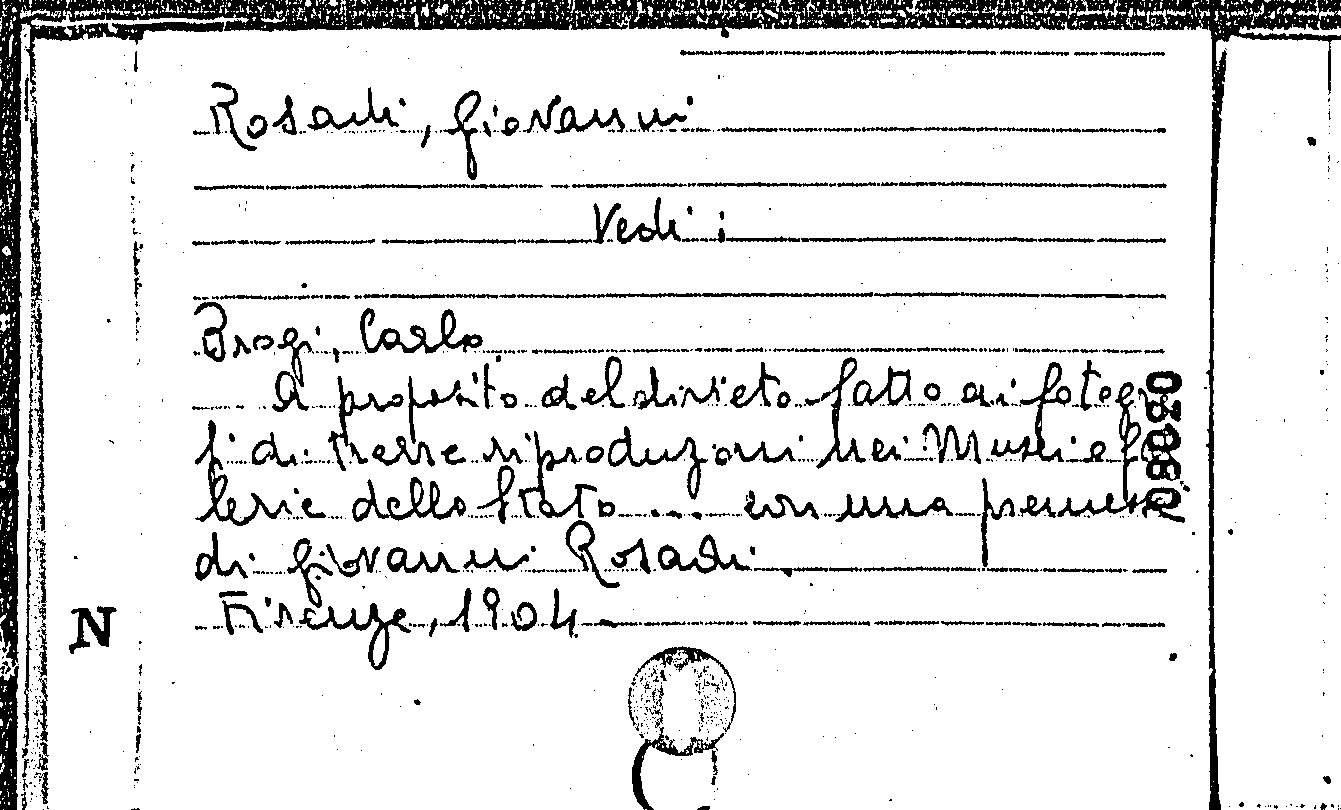 Rosadi, Giovanni
Vedi:
Brogi, Carlo
A proposito del divieto fatto ai fotogr
fi di trarre riproduzioni nei Musei e
lerie dello Stato ... con una premess
di Giovanni Rosadi.
Firenze, 1904.
N